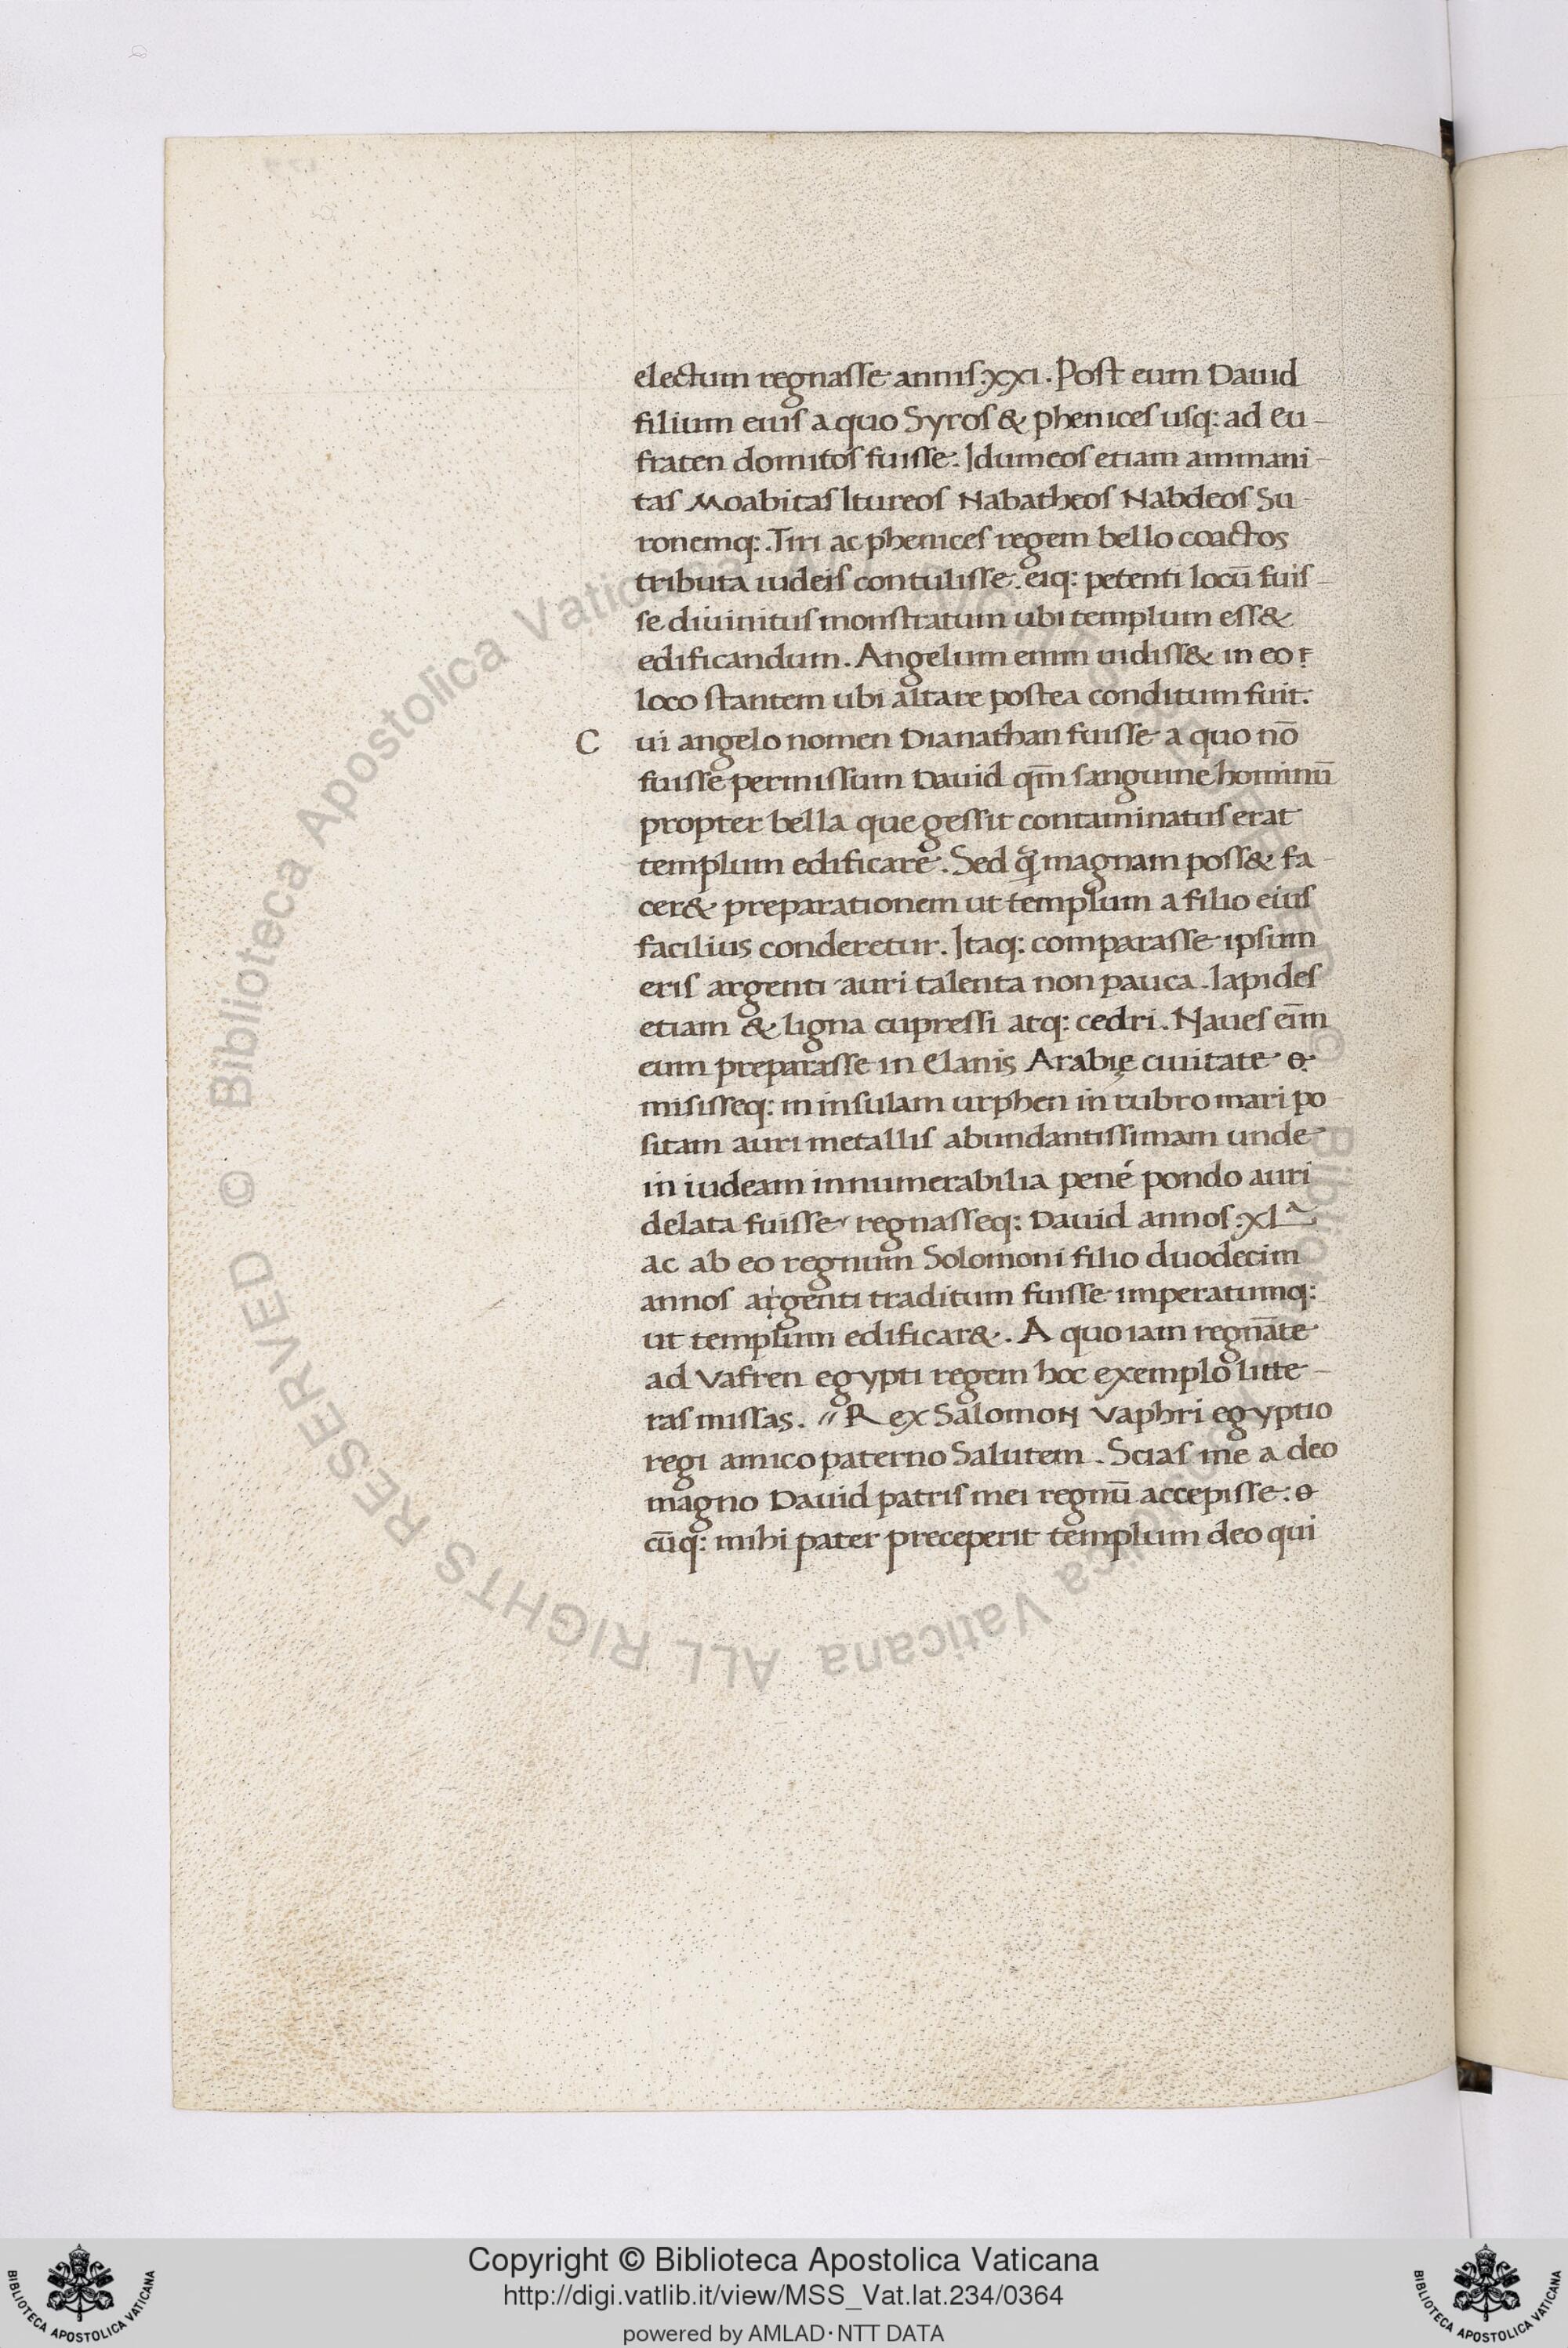 electum regnasse annis:xxi. Post eum Dauid
filium eius a quo Syros & phenices usq: ad eu-
fraten domitos fuisse. Idumeos etiam ammani-
tas Moabitas Itureos Nabatheos Nabdeos Su-
ronemq: Tiri ac phenices regem bello coactos
tributa iudeis contulisse. eiq: petenti locū fuis-
se diuinitus monstratum ubi templum ess&
edificandum. Angelum enim uidiss& in eo
loco stantem ubi altare postea conditum fuit.
C ui angelo nomen Dianathan fuisse a quo nō
fuisse permissum Dauid qm̄ sanguine hominū
propter bella que gessit contaminatus erat
templum edificare. Sed magnam poss& fa-
cer& preparationem ut templum a filio eius
facilius conderetur. Itaq: comparasse ipsum
eris argenti auri talenta non pauca. lapides
etiam & ligna cupressi atq: cedri. Naues eīm
eum preparasse in Elanis Arabię ciuitate
misisseq: in insulam urphen in rubro mari po-
sitam auri metallis abundantissimam unde
in iudeam innumerabilia pené pondo auri
delata fuisse regnasseq: Dauid annos:xl
ac ab eo regnum Solomoni filio duodecim
annos argenti traditum fuisse imperatumq:
ut templum edificar&. A quo iam regnāte
ad Vafren egypti regem hoc exemplo litte-
ras missas. // Rex Salomon Vaphri egyptio
regi amico paterno Salutem. Scias me a deo
magno Dauid patris mei regnū accepisse:
cūq: mihi pater preceperit templum deo qui
© Biblioteca Apostolica Vaticana ALL RIGHTS RESERVED
Copyright © Biblioteca Apostolica Vaticana
http://digi.vatlib.it/view/MSS_Vat.lat.234/0364
powered by AMLAD·NTT DATA
BIBLIOTECA APOSTOLICA VATICANA
BIBLIOTECA APOSTOLICA VATICANA